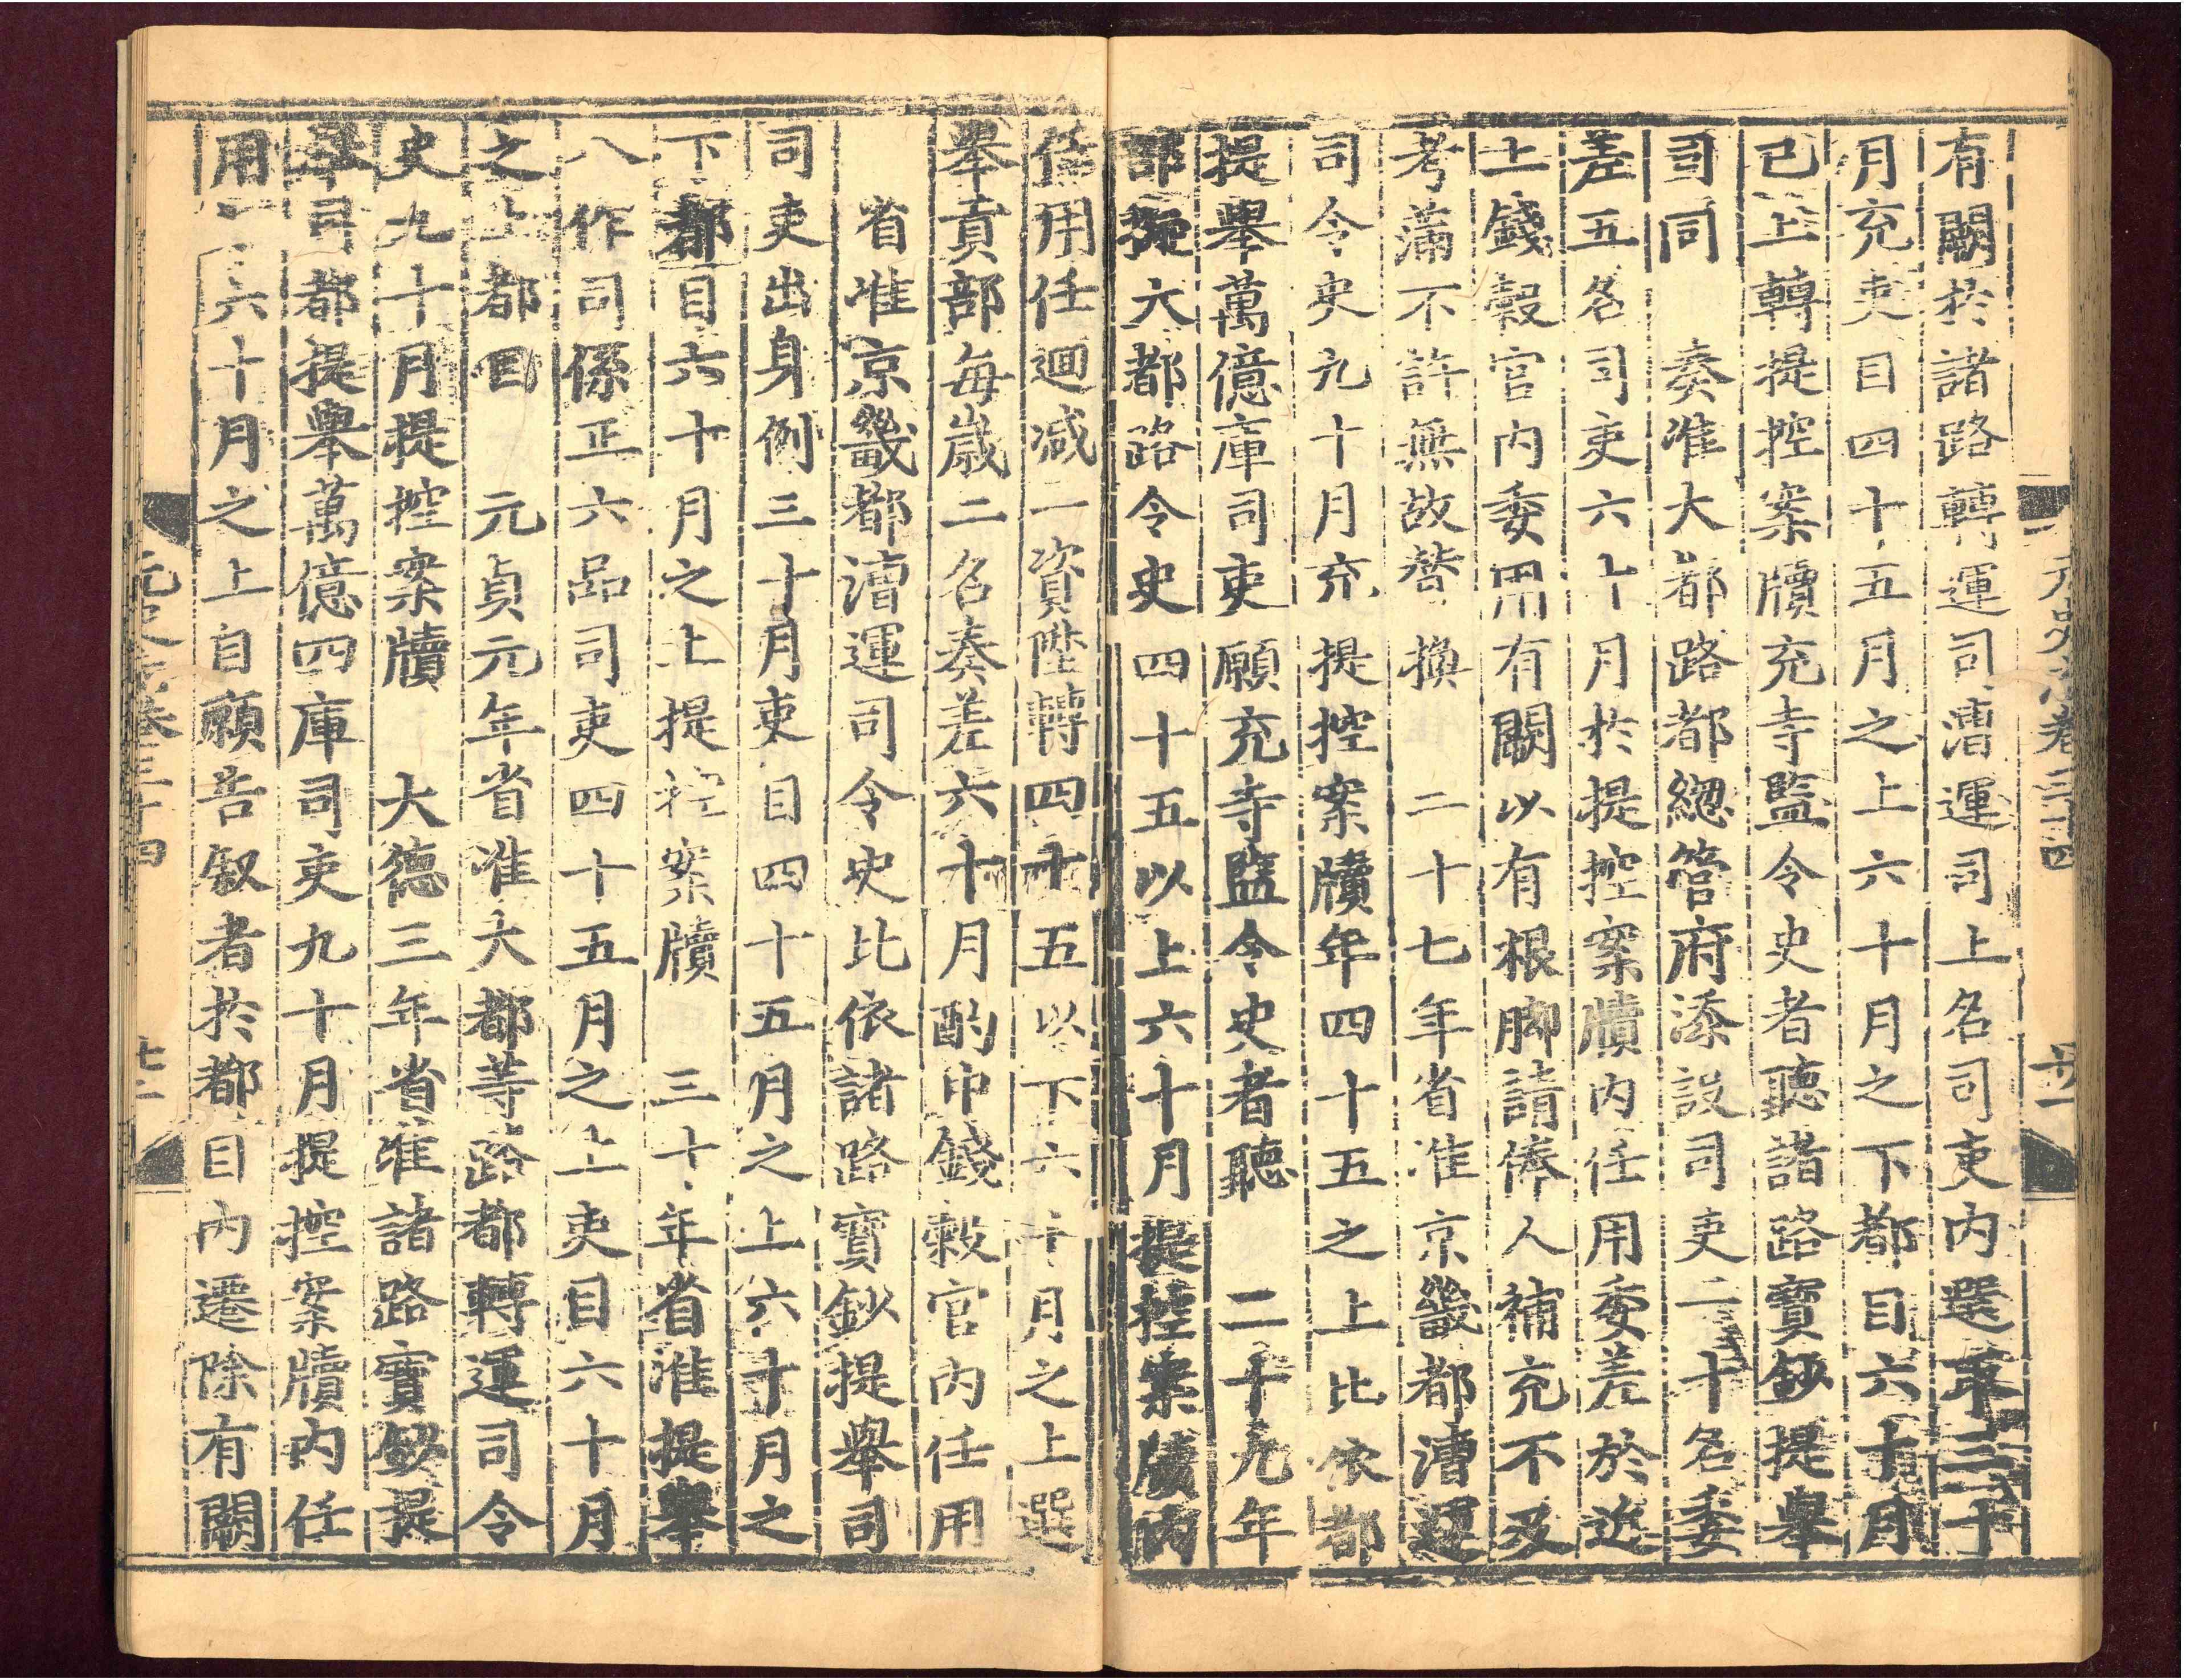 元史志卷三十四
十一
有闕於諸路轉運司漕運司上名司吏内選取三十
月充吏目四十五月之上六十月之下都目六十月
已上轉提控案牘充寺監令史者聽諸路寶鈔提舉
司同　奏准大都路都總管府添設司吏二十名委
差五名司吏六十月於提控案牘内任用委差於近
上錢穀官内委用有闕以有根脚請俸人補充不及
考滿不許無故替換　二十七年省准京畿都漕運
司令史九十月充提控案牘年四十五之上比依都
提舉萬億庫司吏願充寺監令史者聽　二十九年
部擬大都路令史四十五以上六十月提控案牘内
任用任迴减一資陞轉四十五以下六十月之上選
舉貢部每歲二名奏差六十月酌中錢穀官内任用
省准京畿都漕運司令史比依諸路寶鈔提舉司
司吏出身例三十月吏目四十五月之上六十月之
下都目六十月之上提控案牘　三十年省准提舉
八作司係正六品司吏四十五月之上吏目六十月
之上都目　元貞元年省准大都等路都轉運司令
史九十月提控案牘　大德三年省准諸路寶鈔提
舉司都提舉萬億四庫司吏九十月提控案牘内任
用六十月之上自願告叙者於都目内遷除有闕
元史志卷三十四